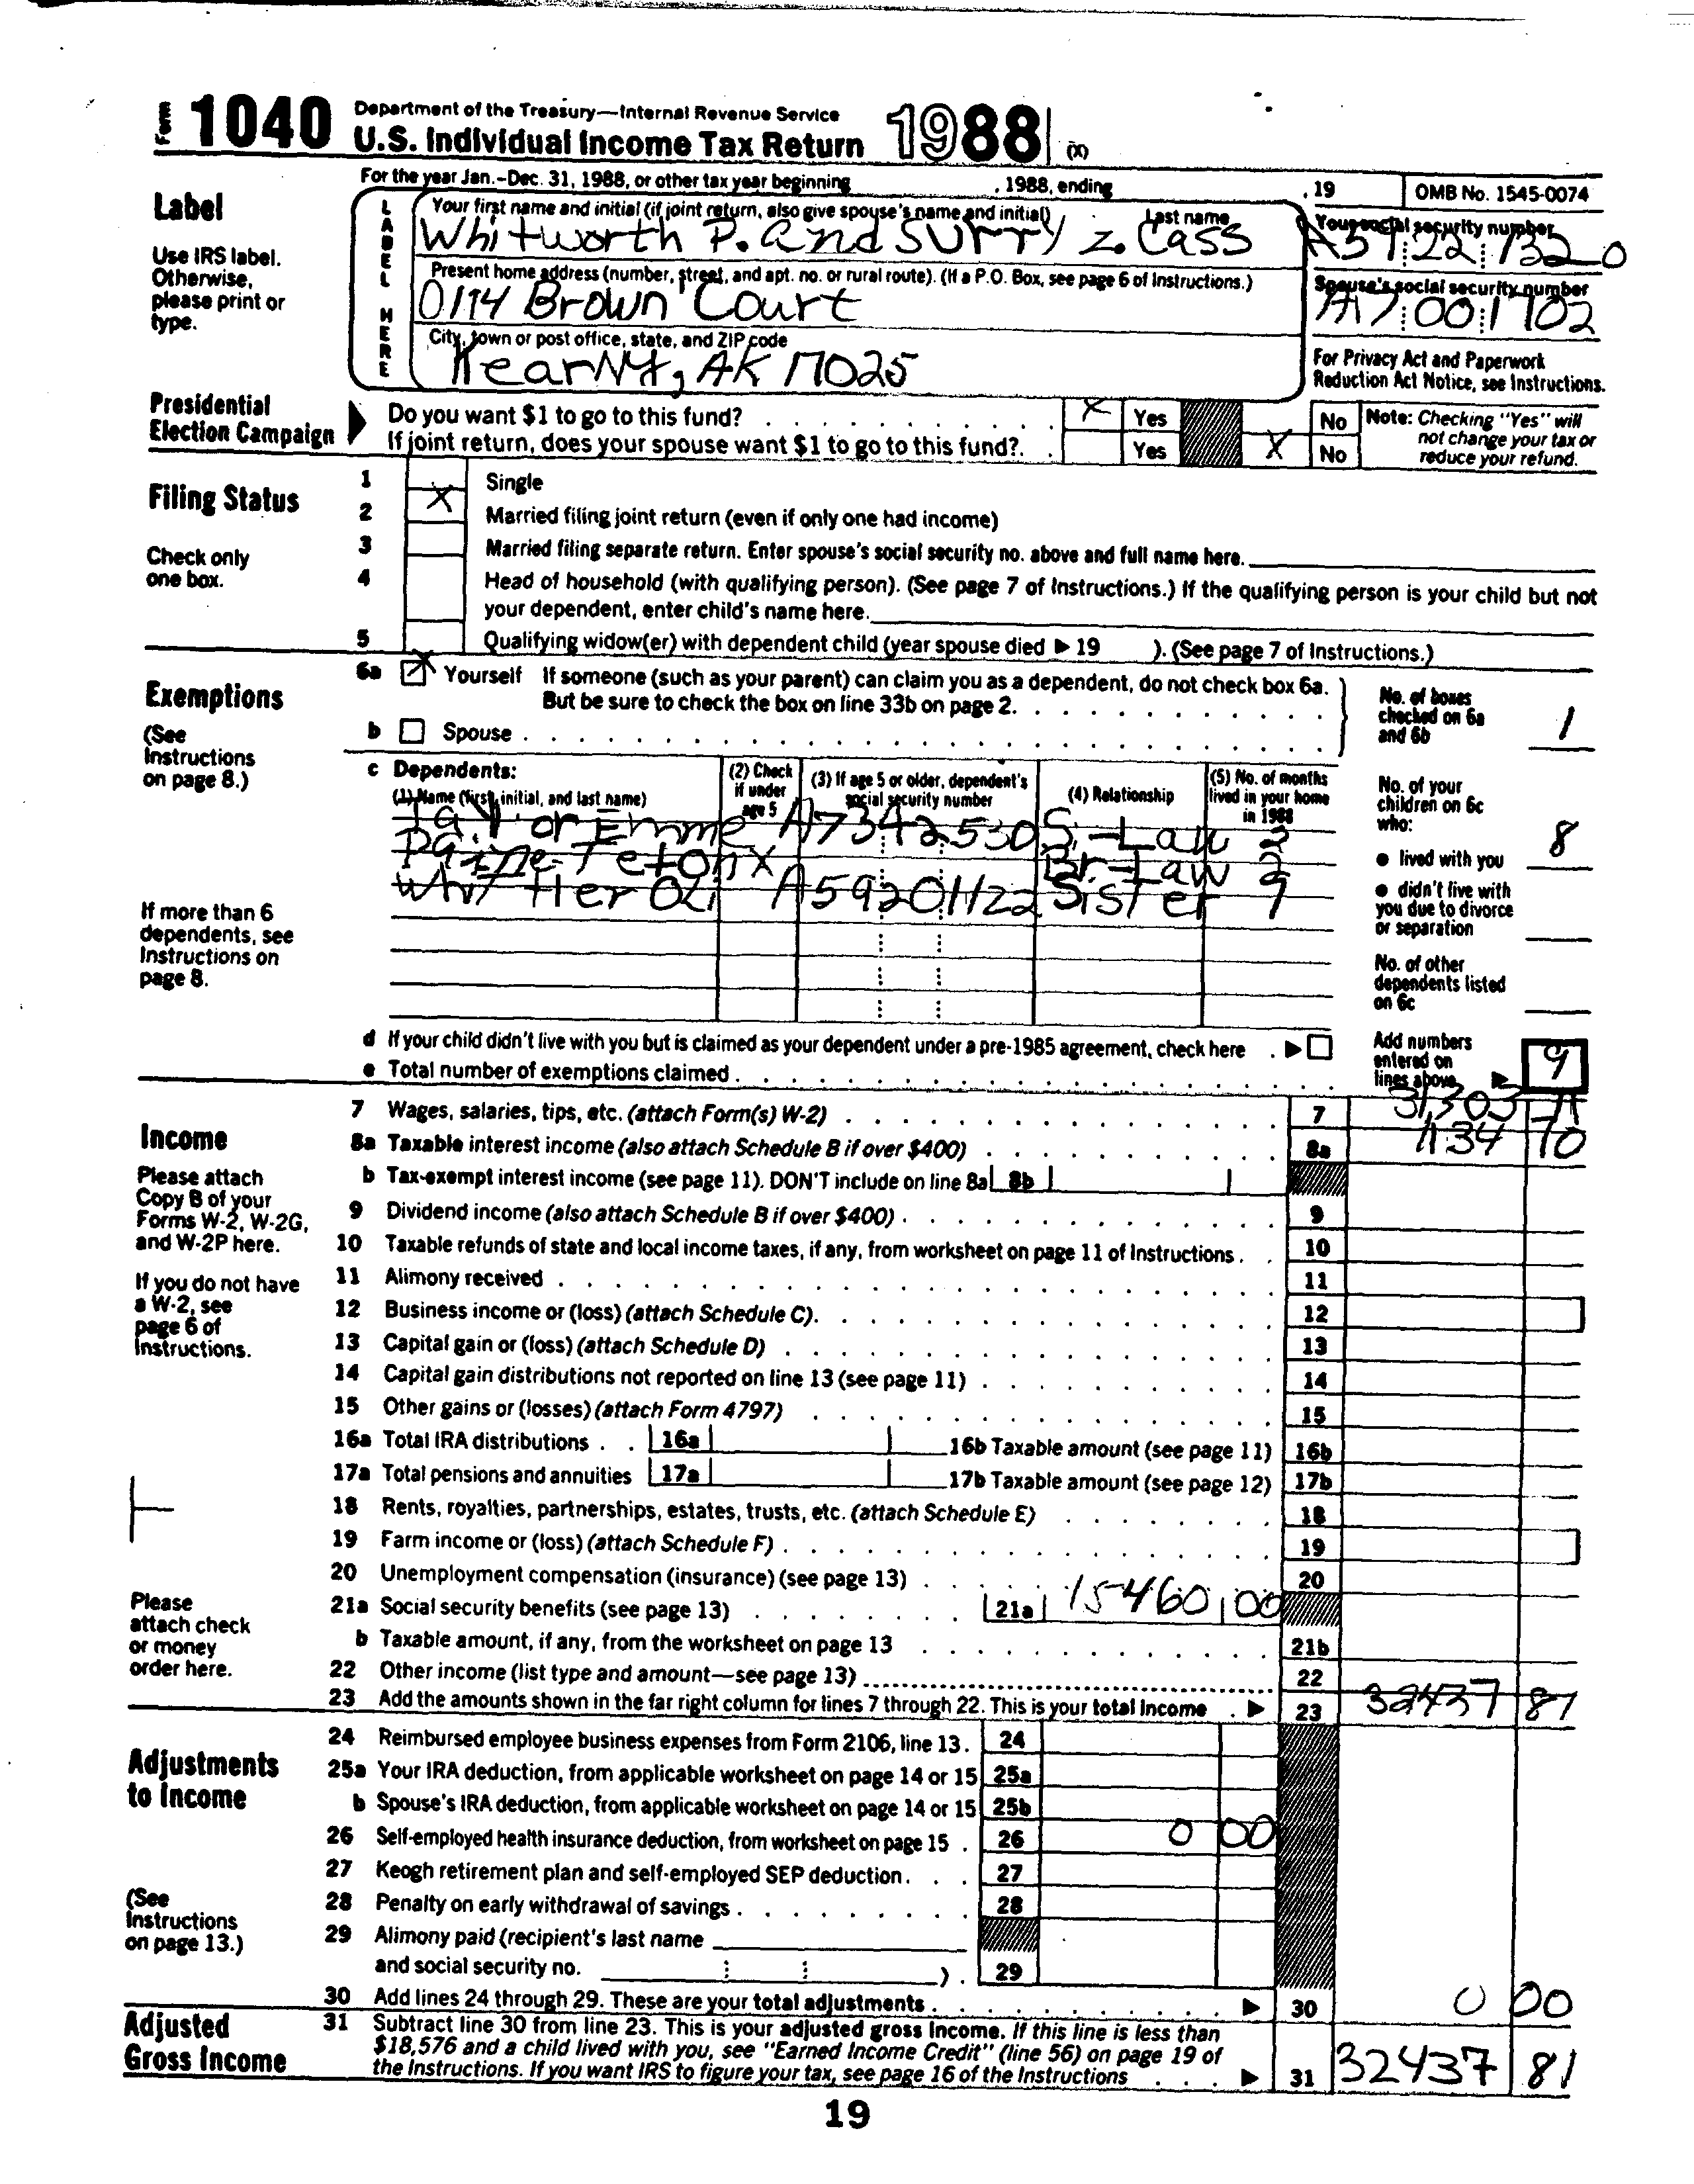 Form 1040 Department of the Treasury—Internal Revenue Service
U.S. Individual Income Tax Return 1988 (X)
For the year Jan.-Dec. 31, 1988, or other tax year beginning , 1988, ending , 19 OMB No. 1545-0074
Label
Use IRS label.
Otherwise,
please print or
type.
LABEL HERE
Your first name and initial (if joint return, also give spouse's name and initial) Last name
Whitworth P. and Surry Z. Cass
Your social security number
A57 22 1320
Present home address (number, street, and apt. no. or rural route). (If a P.O. Box, see page 6 of Instructions.)
0114 Brown Court
Spouse's social security number
001702
City, town or post office, state, and ZIP code
AK 17025
For Privacy Act and Paperwork
Reduction Act Notice, see Instructions.
Presidential
Election Campaign
Do you want $1 to go to this fund? X Yes No
If joint return, does your spouse want $1 to go to this fund?. Yes X No
Note: Checking "Yes" will
not change your tax or
reduce your refund.
Filing Status
Check only
one box.
1 Single
2 X Married filing joint return (even if only one had income)
3 Married filing separate return. Enter spouse's social security no. above and full name here.
4 Head of household (with qualifying person). (See page 7 of Instructions.) If the qualifying person is your child but not
your dependent, enter child's name here.
5 Qualifying widow(er) with dependent child (year spouse died ▶ 19 ). (See page 7 of Instructions.)
Exemptions
(See
Instructions
on page 8.)
6a X Yourself If someone (such as your parent) can claim you as a dependent, do not check box 6a.
But be sure to check the box on line 33b on page 2.
b Spouse
No. of boxes
checked on 6a
and 6b 1
c Dependents:
(1) Name (first, initial, and last name)
(2) Check
if under
age 5
(3) If age 5 or older, dependent's
social security number
(4) Relationship
(5) No. of months
lived in your home
in 1988
Taylor Emme A7342530 S.-Law 2
Paine Teton X Br.-Law 2
Whittier Oli A59201122 Sister 9
If more than 6
dependents, see
Instructions on
page 8.
No. of your
children on 6c
who:
● lived with you 8
● didn't live with
you due to divorce
or separation
No. of other
dependents listed
on 6c
d If your child didn't live with you but is claimed as your dependent under a pre-1985 agreement, check here ▶
e Total number of exemptions claimed
Add numbers
entered on
lines above ▶ 9
Income
Please attach
Copy B of your
Forms W-2, W-2G,
and W-2P here.
If you do not have
a W-2, see
page 6 of
Instructions.
Please
attach check
or money
order here.
7 Wages, salaries, tips, etc. (attach Form(s) W-2) 7 31,303 11
8a Taxable interest income (also attach Schedule B if over $400) 8a 1134 70
b Tax-exempt interest income (see page 11). DON'T include on line 8a 8b
9 Dividend income (also attach Schedule B if over $400) 9
10 Taxable refunds of state and local income taxes, if any, from worksheet on page 11 of Instructions 10
11 Alimony received 11
12 Business income or (loss) (attach Schedule C). 12
13 Capital gain or (loss) (attach Schedule D) 13
14 Capital gain distributions not reported on line 13 (see page 11) 14
15 Other gains or (losses) (attach Form 4797) 15
16a Total IRA distributions 16a 16b Taxable amount (see page 11) 16b
17a Total pensions and annuities 17a 17b Taxable amount (see page 12) 17b
18 Rents, royalties, partnerships, estates, trusts, etc. (attach Schedule E) 18
19 Farm income or (loss) (attach Schedule F) 19
20 Unemployment compensation (insurance) (see page 13) 20
21a Social security benefits (see page 13) 21a 15460 00
b Taxable amount, if any, from the worksheet on page 13 21b
22 Other income (list type and amount—see page 13) 22
23 Add the amounts shown in the far right column for lines 7 through 22. This is your total income ▶ 23 32437 81
Adjustments
to Income
(See
Instructions
on page 13.)
24 Reimbursed employee business expenses from Form 2106, line 13. 24
25a Your IRA deduction, from applicable worksheet on page 14 or 15 25a
b Spouse's IRA deduction, from applicable worksheet on page 14 or 15 25b
26 Self-employed health insurance deduction, from worksheet on page 15 26 0 00
27 Keogh retirement plan and self-employed SEP deduction 27
28 Penalty on early withdrawal of savings 28
29 Alimony paid (recipient's last name
and social security no. ). 29
30 Add lines 24 through 29. These are your total adjustments ▶ 30 0 00
Adjusted
Gross Income
31 Subtract line 30 from line 23. This is your adjusted gross income. If this line is less than
$18,576 and a child lived with you, see "Earned Income Credit" (line 56) on page 19 of
the Instructions. If you want IRS to figure your tax, see page 16 of the Instructions ▶ 31 32437 81
19